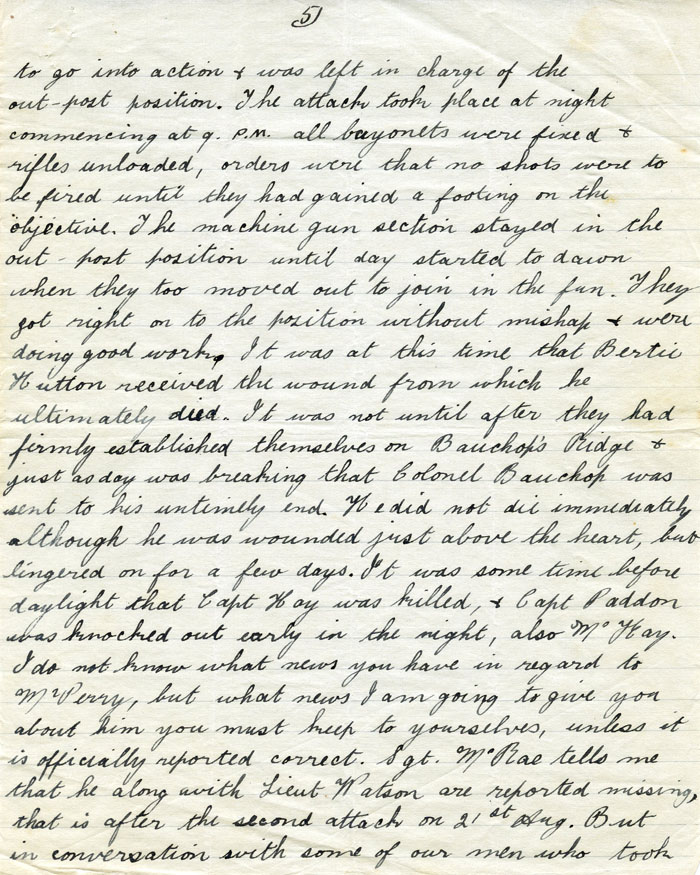 5)
to go into action & was left in charge of the
out-post position. The attack took place at night
commencing at 9. P.M. all bayonets were fixed &
rifles unloaded, orders were that no shots were to
be fired until they had gained a footing on the
objective. The machine gun section stayed in the
out-post position until day started to dawn
when they too moved out to join in the fun. They
got right on to the position without mishap & were
doing good work, It was at this time that Bertie
Hutton received the wound from which he
ultimately died. It was not until after they had
firmly established themselves on Bauchop's Ridge &
just as day was breaking that Colonel Bauchop was
sent to his untimely end. He did not die immediately
although he was wounded just above the heart, but
lingered on for a few days. It was some time before
daylight that Capt Hay was killed, & Capt Paddon
was knocked out early in the night, also Mc Hay.
I do not know what news you have in regard to
Mr Perry, but what news I am going to give you
about him you must keep to yourselves, unless it
is officially reported correct. Sgt. McRae tells me
that he along with Lieut. Watson are reported missing,
that is after the second attack on 21st Aug. But
in conversation with some of our men who took